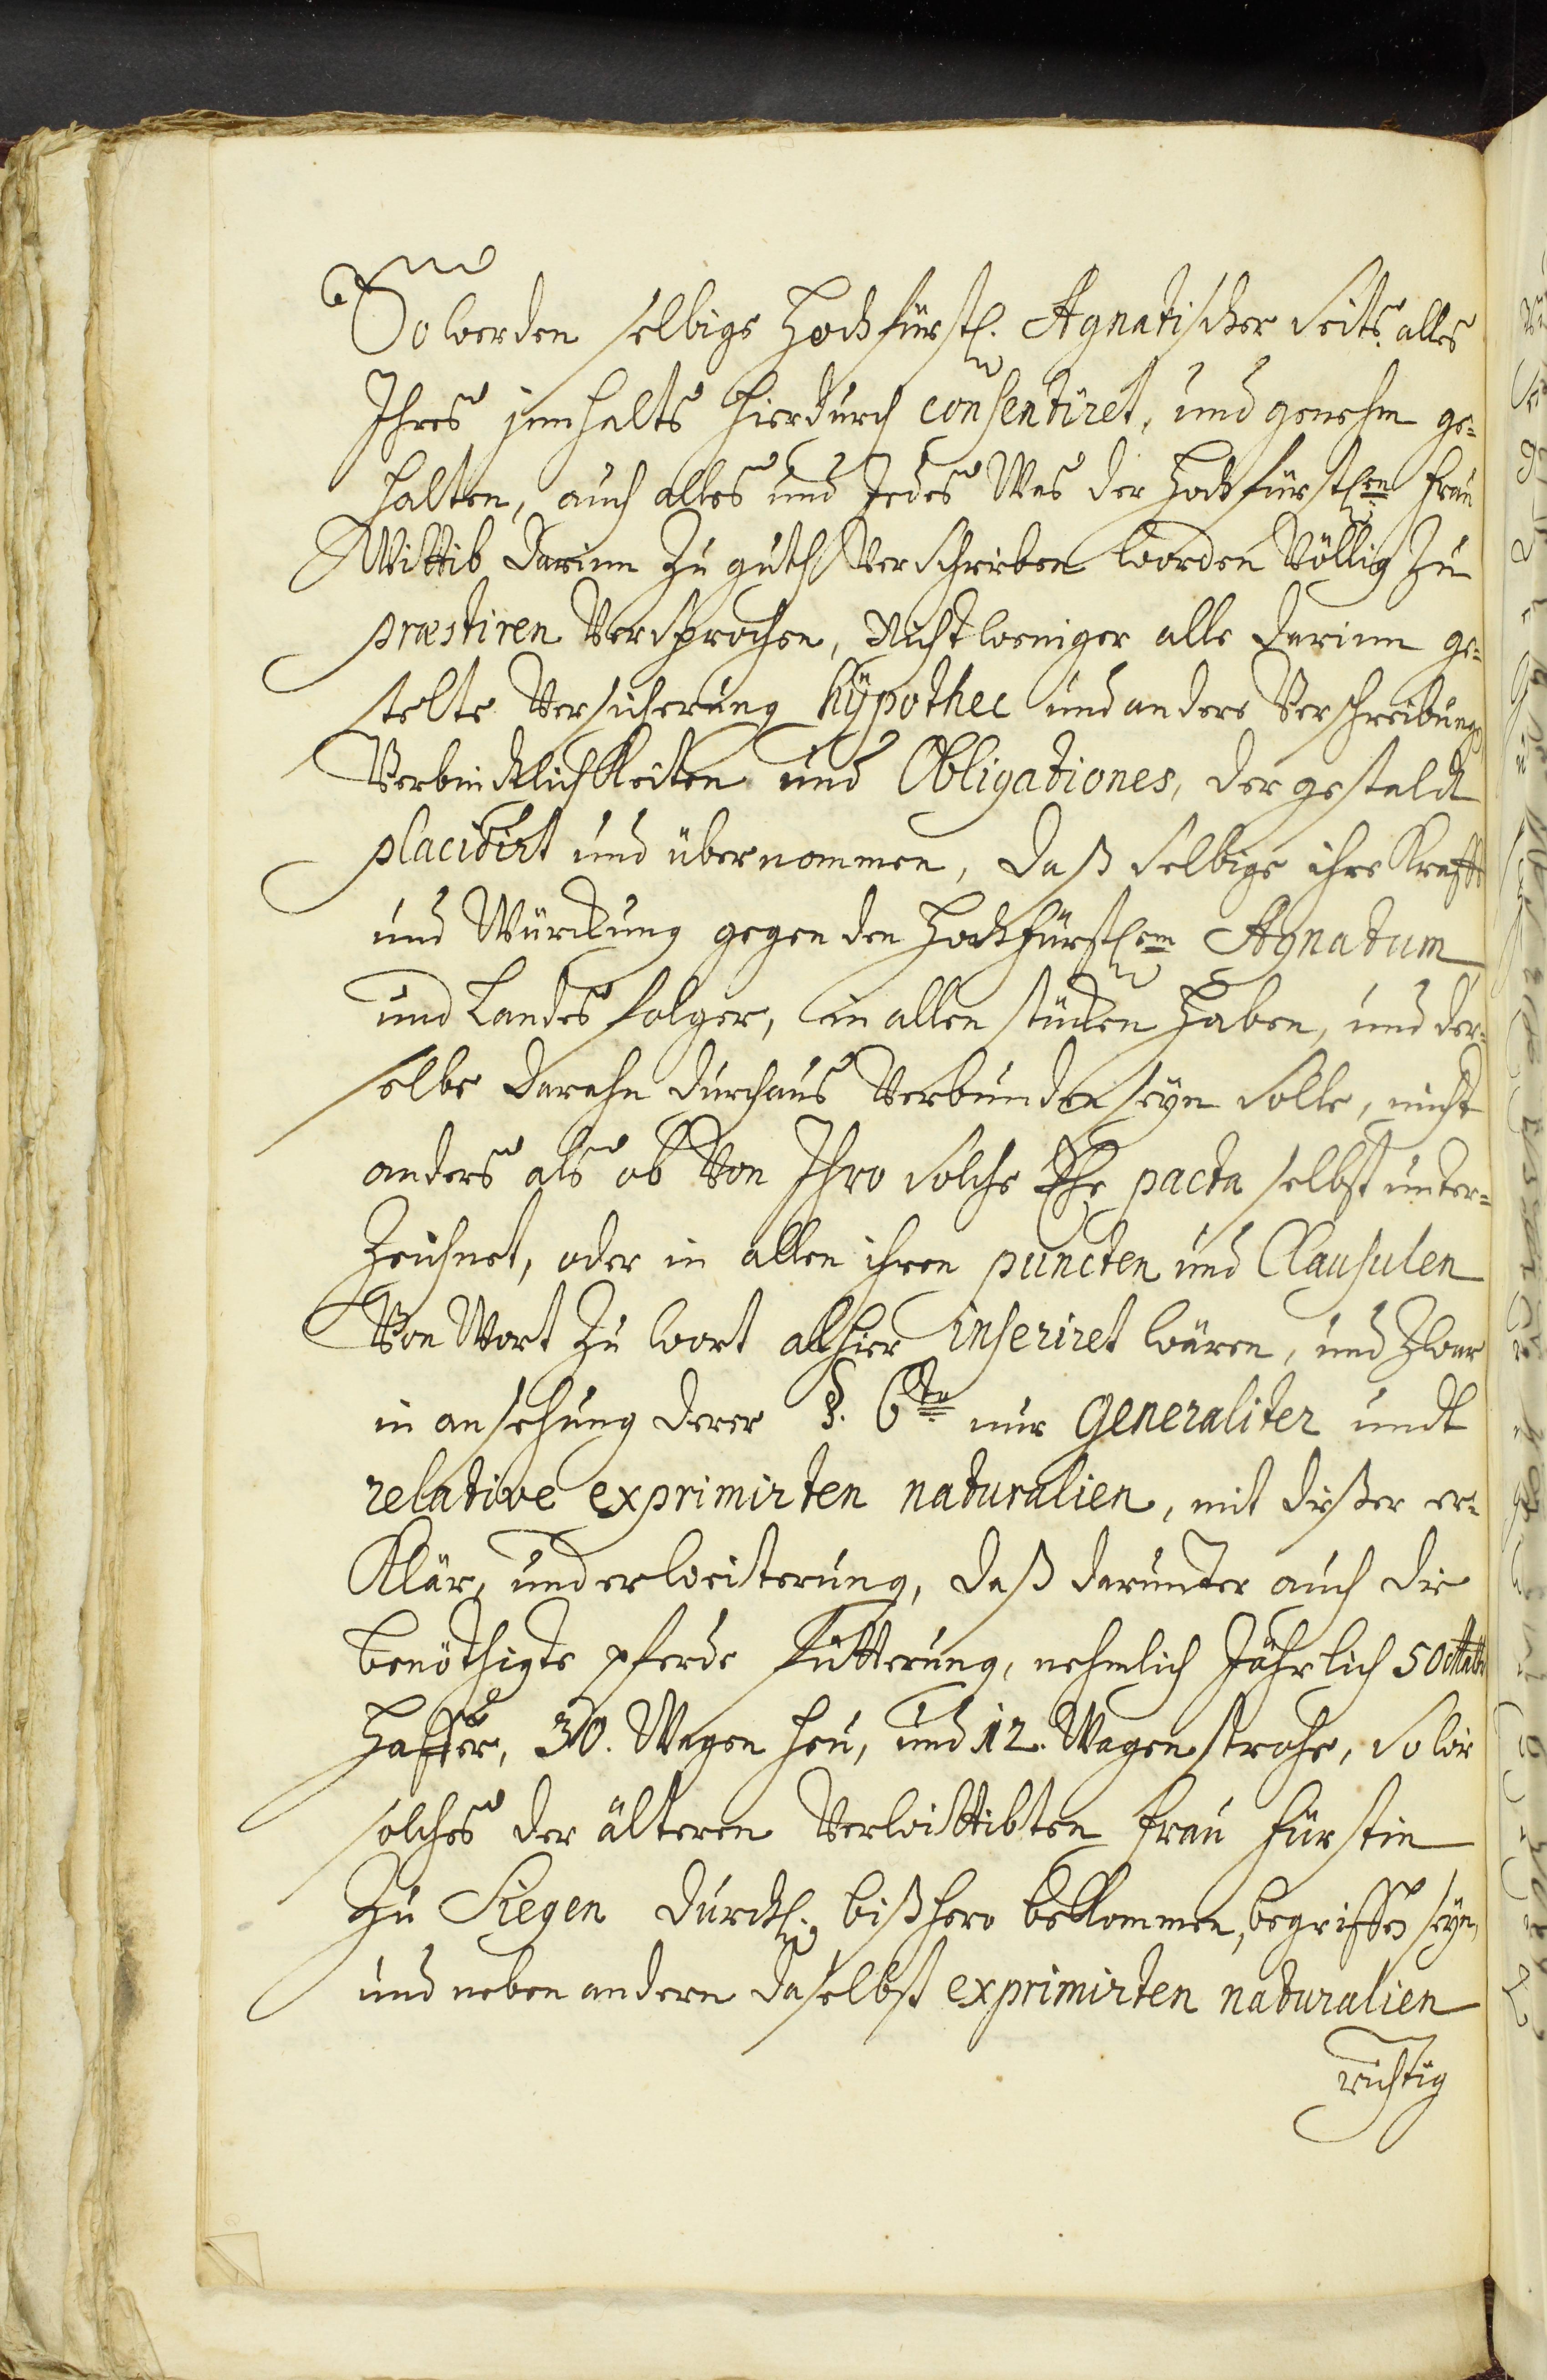 So werden selbige Hochfürstl. Agnatischer Seits alles
Ihres jnnhalts hierdurch consentiret, und genehm ge=
halten, auch alles und Jedes Was der Hochfürstlen Frau
Wittib darinn zu guth Verschrieben worden Völlig zu
præstiren Versprochen, Nicht weniger alle darinn ge=
stelte Versicherung hÿpothec und andere Verschreibung,
Verbindtlichkeiten und Obligationes, der gestaldt
placidirt und übernommen, daß selbige ihre Krafft
und Würckung gegen den Hochfürstlem Agnatum
und Landes folger, in allen stücken haben, und der=
selbe darahn durchaus Verbunden seÿn solle, nicht
anders als ob Von Ihro solche Ehe pacta selbst unter=
zeichnet, oder in allen ihren puncten und Clausulen
Von Wort zu wort allhier inseriret wären, und Zwar
in ansehung derer §. 6to nur generaliter undt
relative exprimirten naturalien, mit dießer er=
klär, und erweiterung, daß darunter auch die
benöthigte pferde Fütterung, nehmlich Jährlich 50 Maltr
Haffer, 30. Wagen heu, und 12. Wagen strohe, so wie
solches der älteren Verwittibten Frau Fürstin
zu Siegen Durchl. bißhero bekommen, begriffen seÿn,
und neben andern daselbst exprimirten naturalien
richtig